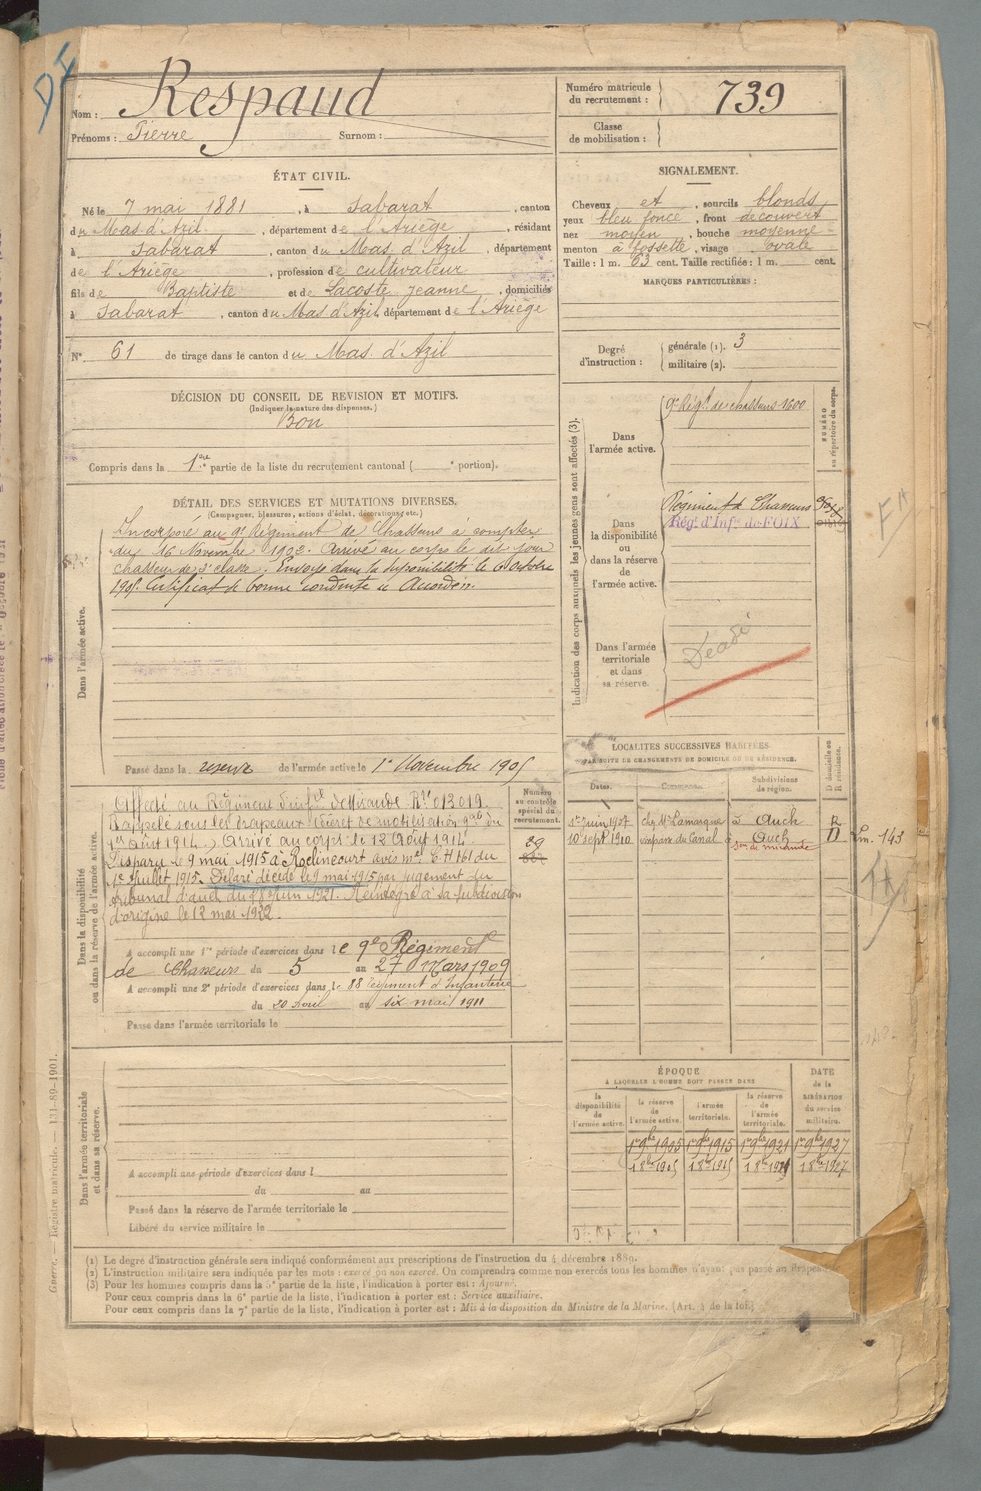 Nom : Respaud
Prénoms : Pierre Surnom :
Numéro matricule du recrutement : 739
Classe de mobilisation :
ÉTAT CIVIL.
Né le 7 mai 1881, à Sabarat, canton
du Mas d'Azil, département de l'Ariège, résidant
à Sabarat, canton du Mas d'Azil, département
de l'Ariège, profession de cultivateur
fils de Baptiste et de Lacoste Jeanne, domiciliés
à Sabarat, canton du Mas d'Azil, département de l'Ariège
N° 61 de tirage dans le canton du Mas d'Azil
SIGNALEMENT.
Cheveux et, sourcils blonds
yeux bleu foncé, front découvert
nez moyen, bouche moyenne
menton à fossette, visage ovale
Taille : 1 m. 63 cent. Taille rectifiée : 1 m. cent.
MARQUES PARTICULIÈRES :
Degré d'instruction : générale (1). 3
militaire (2).
DÉCISION DU CONSEIL DE REVISION ET MOTIFS.
(Indiquer la nature des dispenses.)
Bon
Compris dans la 1ère partie de la liste du recrutement cantonal ( e portion).
DÉTAIL DES SERVICES ET MUTATIONS DIVERSES.
(Campagnes, blessures, actions d'éclat, décorations, etc.)
Dans l'armée active.
Incorporé au 9e Régiment de Chasseurs à compter
du 16 Novembre 1902. Arrivé au corps le dit jour
chasseur de 2e classe. Envoyé dans la disponibilité le 6 octobre
1905. Certificat de bonne conduite "Accordé".
Passé dans la réserve de l'armée active le 1er Novembre 1905
Indication des corps auxquels les jeunes gens sont affectés (3).
NUMÉRO au répertoire du corps.
Dans l'armée active.
9e Régt de chasseurs 1600
Dans la disponibilité ou dans la réserve de l'armée active.
Régiment de Chasseurs
Régt d'Infie de FOIX
Dans l'armée territoriale et dans sa réserve.
Décédé
LOCALITÉS SUCCESSIVES HABITÉES
PAR SUITE DE CHANGEMENTS DE DOMICILE OU DE RÉSIDENCE.
Dates. Communes. Subdivisions de région. D domicile ou R résidence.
1er juin 1907 chez Mr Lamarque à Auch R
10 sept 1910 impasse du Canal à Auch D
son de mirande
Dans la disponibilité ou dans la réserve de l'armée active.
Numéro au contrôle spécial du recrutement.
29
Affecté au Régiment d'infie de Mirande Rle 013019.
Rappelé sous les drapeaux (décret de mobilisation gale du
1er août 1914.) Arrivé au corps le 12 août 1914
Disparu le 9 mai 1915 à Roclincourt avis mel E.H 161 du
1er Juillet 1915. Déclaré décédé le 9 mai 1915 par jugement du
tribunal d'Auch du 28 Juin 1921. Réintégré à sa subdivision
d'origine le 12 mai 1922.
A accompli une 1re période d'exercices dans le 9e Régiment
de Chasseurs du 5 au 27 Mars 1909
A accompli une 2e période d'exercices dans le 88 régiment d'Infanterie
du 20 avril au six mai 1911
Passé dans l'armée territoriale le
Dans l'armée territoriale et dans sa réserve.
A accompli une période d'exercices dans l
du au
Passé dans la réserve de l'armée territoriale le
Libéré du service militaire le
ÉPOQUE
A LAQUELLE L'HOMME DOIT PASSER DANS
la disponibilité de l'armée active.
la réserve de l'armée active.
l'armée territoriale.
la réserve de l'armée territoriale.
DATE de la LIBÉRATION du service militaire.
1er 9bre 1905 1er 9bre 1915 1er 9bre 1921 1er 9bre 1927
(1) Le degré d'instruction générale sera indiqué conformément aux prescriptions de l'instruction du 4 décembre 1889.
(2) L'instruction militaire sera indiquée par les mots : exercé ou non exercé. On comprendra comme non exercés tous les hommes n'ayant pas passé au drapeau.
(3) Pour les hommes compris dans la 5e partie de la liste, l'indication à porter est : Ajourné.
Pour ceux compris dans la 6e partie de la liste, l'indication à porter est : Service auxiliaire.
Pour ceux compris dans la 7e partie de la liste, l'indication à porter est : Mis à la disposition du Ministre de la Marine. (Art. 4 de la loi.)
Guerre. — Registre matricule. — 131-89-1901.